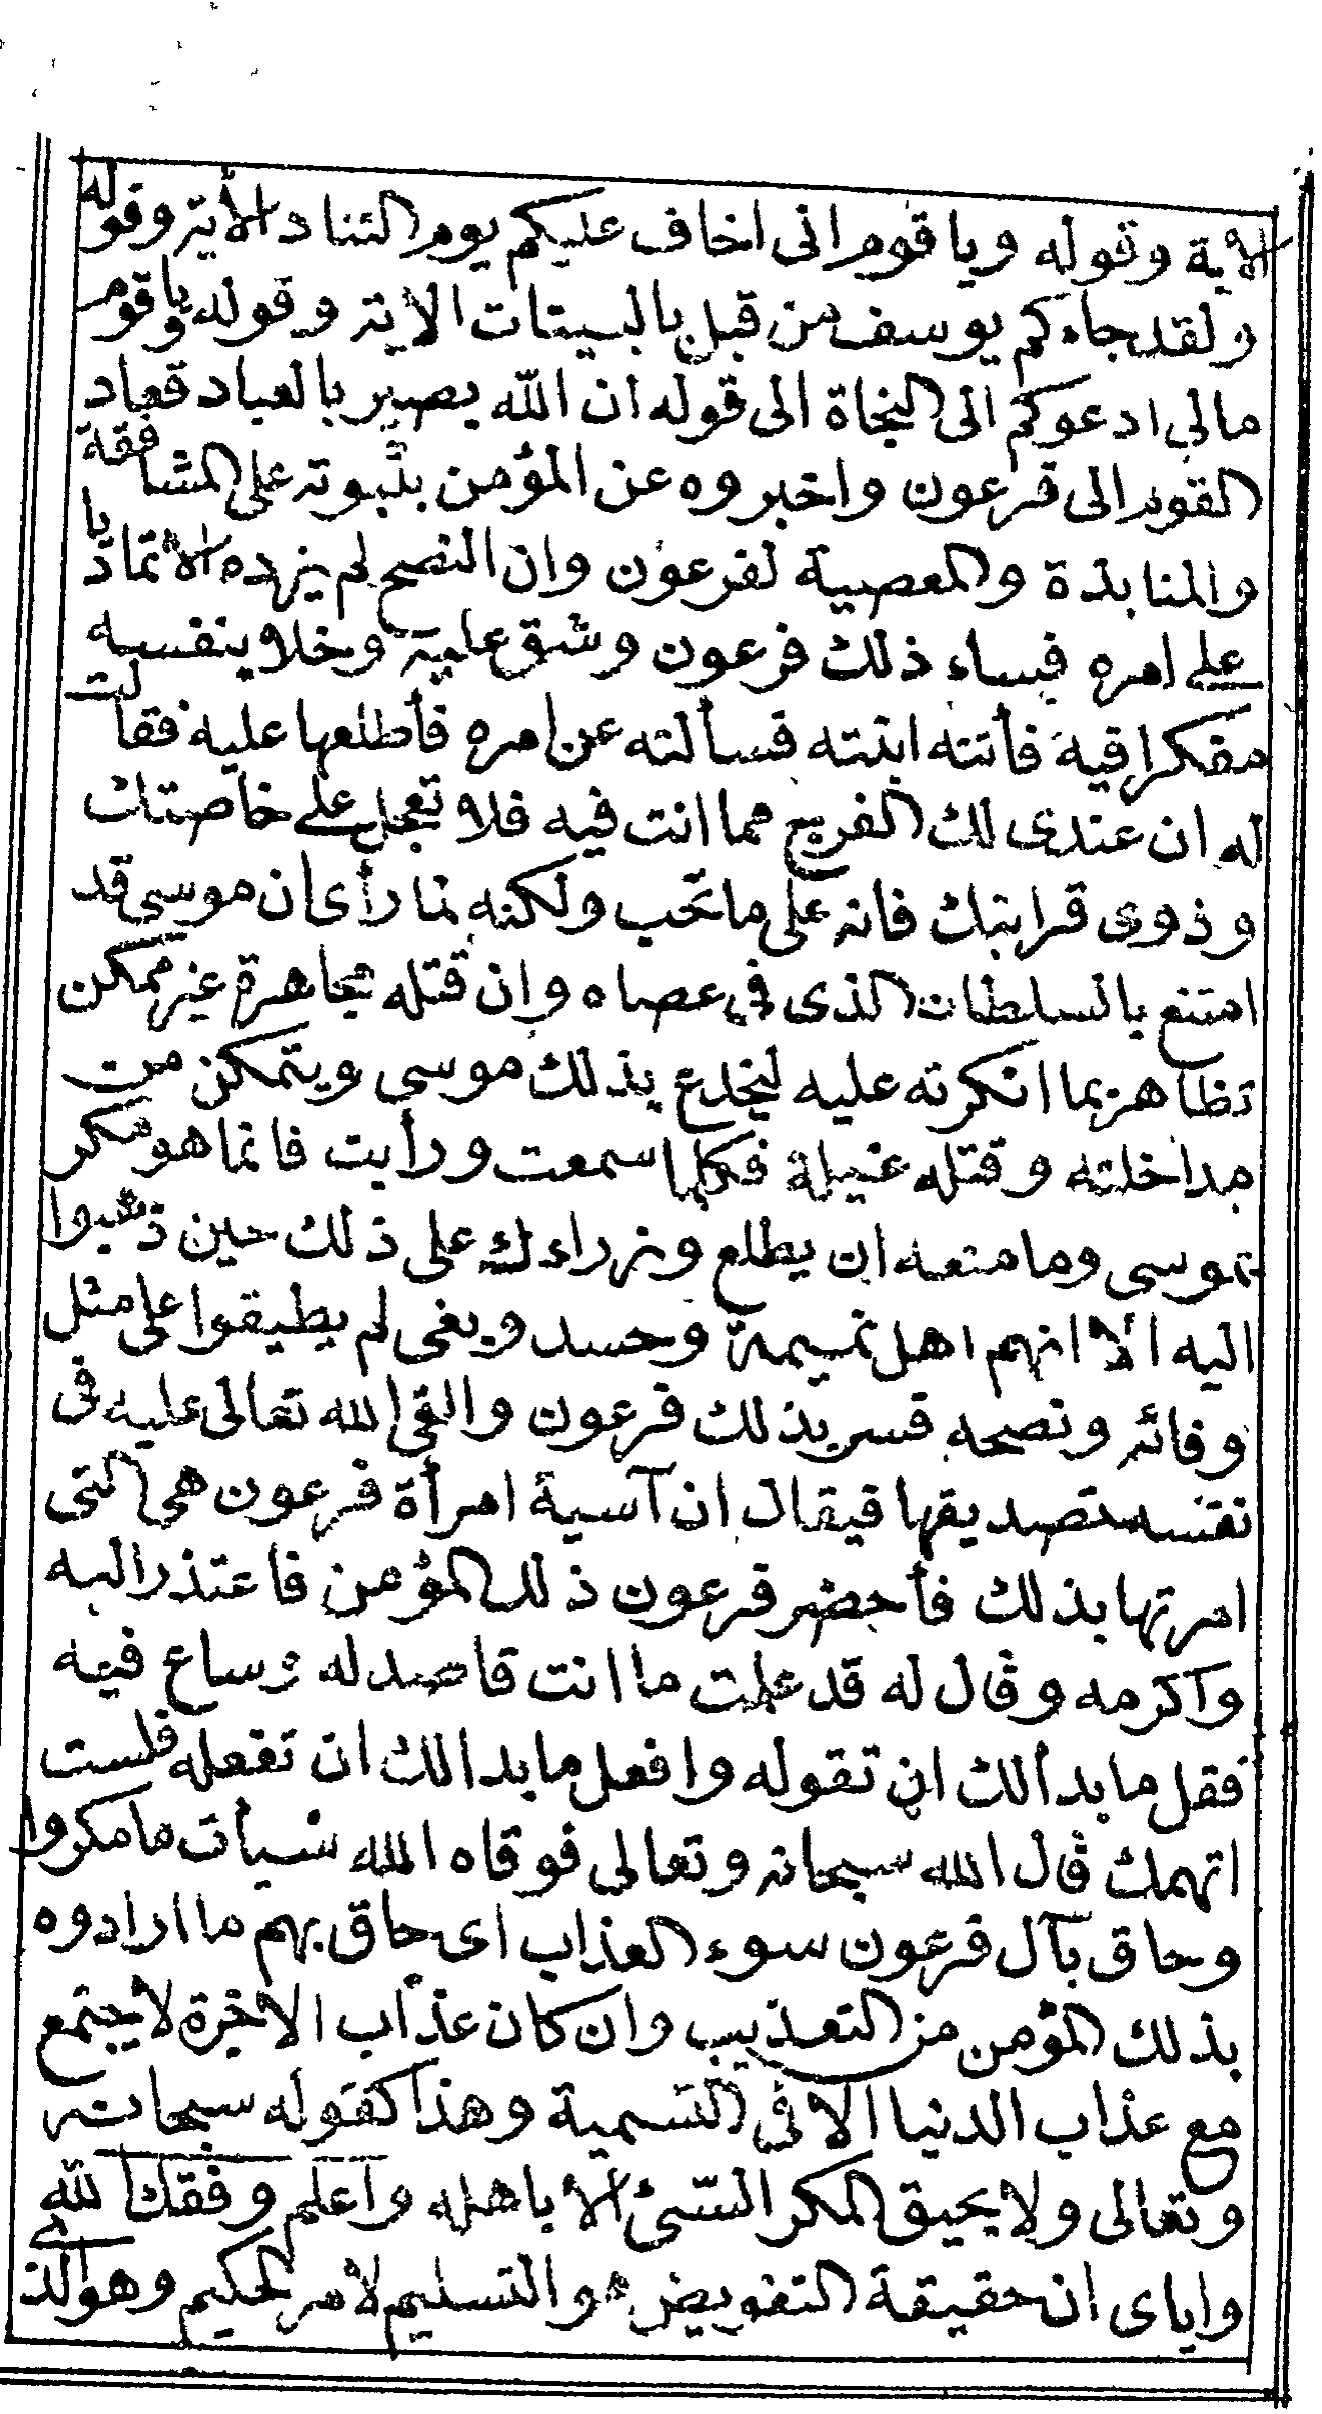 الاية وقوله ويا قوم انى اخاف عليكم يوم التناد الأية وقوله
ولقد جاءكم يوسف من قبل بالبينات الاية وقوله ويا قوم
مالي ادعوكم الى النجاة الى قوله ان الله بصير بالعباد فعاد
القوم الى فرعون واخبروه عن المؤمن بثبوته على المشاققة
والمنابذة والمعصية لفرعون وان النصح لم يزده الا تماديا
على امره فساء ذلك فرعون وشق عليه وخلا بنفسه
مفكرا فيه فأتته ابنته فسألته عن امره فأطلعها عليه فقالت
له ان عندى لك الفرج مما انت فيه فلا تعجل على خاصتك
وذوى قرابتك فانه على ما تحب ولكنه لما رأى ان موسى قد
امتنع بالسلطان الذى في عصاه وان قتله مجاهرة غير ممكن
تظاهر بما انكرته عليه ليخدع بذلك موسى ويتمكن من
مداخلته وقتله غيلة فكلما سمعت ورأيت فانما هو مكر
بموسى وما منعه ان يطلع وزراءك على ذلك حين ذهبوا
اليه الا انهم اهل نميمة وحسد وبغى لم يطيقوا على مثل
وفائه ونصحه فسر بذلك فرعون والقى الله تعالى عليه فى
نفسه تصديقها فيقال ان آسية امرأة فرعون هى التى
امرتها بذلك فأحضر فرعون ذلك المؤمن فاعتذر اليه
واكرمه وقال له قد علمت ما انت قاصد له وساع فيه
فقل ما بدا لك ان تقوله وافعل ما بدا لك ان تفعله فلست
اتهمك قال الله سبحانه وتعالى فوقاه الله سيأت ما مكروا
وحاق بآل فرعون سوء العذاب اى حاق بهم ما ارادوه
بذلك المؤمن من التعذيب وان كان عذاب الاخرة لا يجتمع
مع عذاب الدنيا الا فى التسمية وهذا كقوله سبحانه
وتعالى ولا يحيق المكر السئ الا باهله واعلم وفقك الله
واياى ان حقيقة التفويض هو التسليم لامر الحكيم وهو الذى